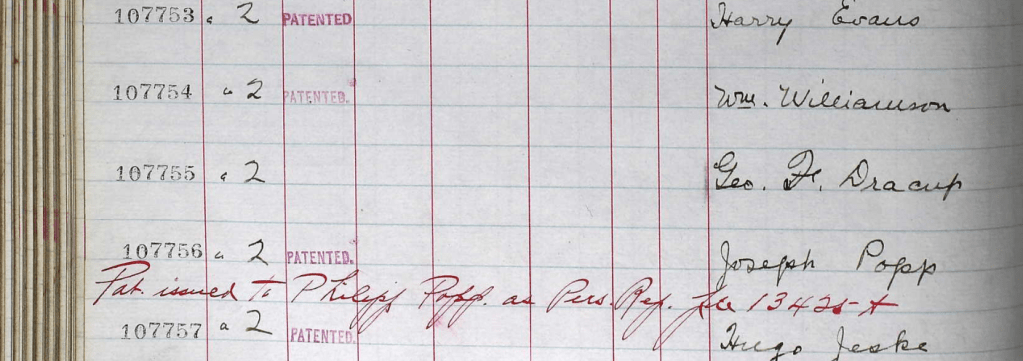 107753 " 2 PATENTED Harry Evans
107754 " 2 PATENTED. Wm. Williamson
107755 " 2 Geo. F. Dracup
107756 " 2 PATENTED. Joseph Popp
Pat. issued to Philipp Popp. as Pers. Rep. file 13425-A
107757 " 2 PATENTED. Hugo Jeske